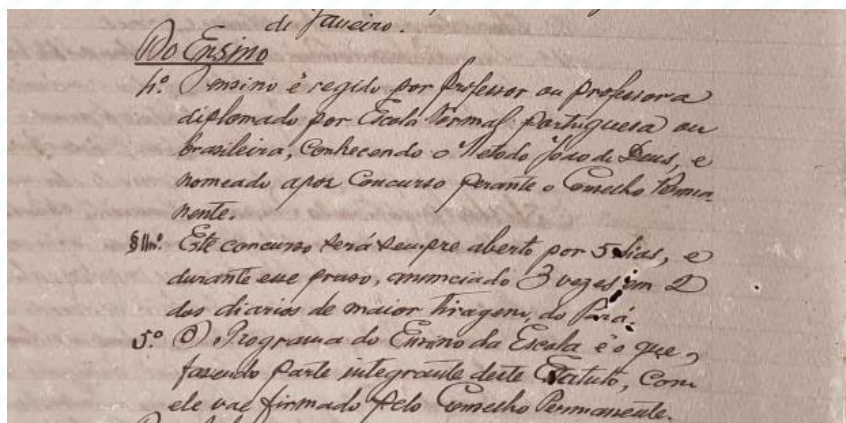 de Janeiro.
Do Ensino
4º. O ensino é regido por Professor ou Professora
diplomado por Escola Normal, Portuguesa ou
brasileira, conhecendo o Metodo João de Deus, e
nomeado apoz Concurso perante o Conselho Perma-
nente.
§ Un.º Este concurso será sempre aberto por 5 dias, e
durante esse prazo, annunciado 3 vezes em 2
dos diarios de maior tiragem, do Pará.
5.º O Programa do Ensino da Escola é o que,
fazendo parte integrante deste Estatuto, com
ele vae firmado pelo Conselho Permanente.